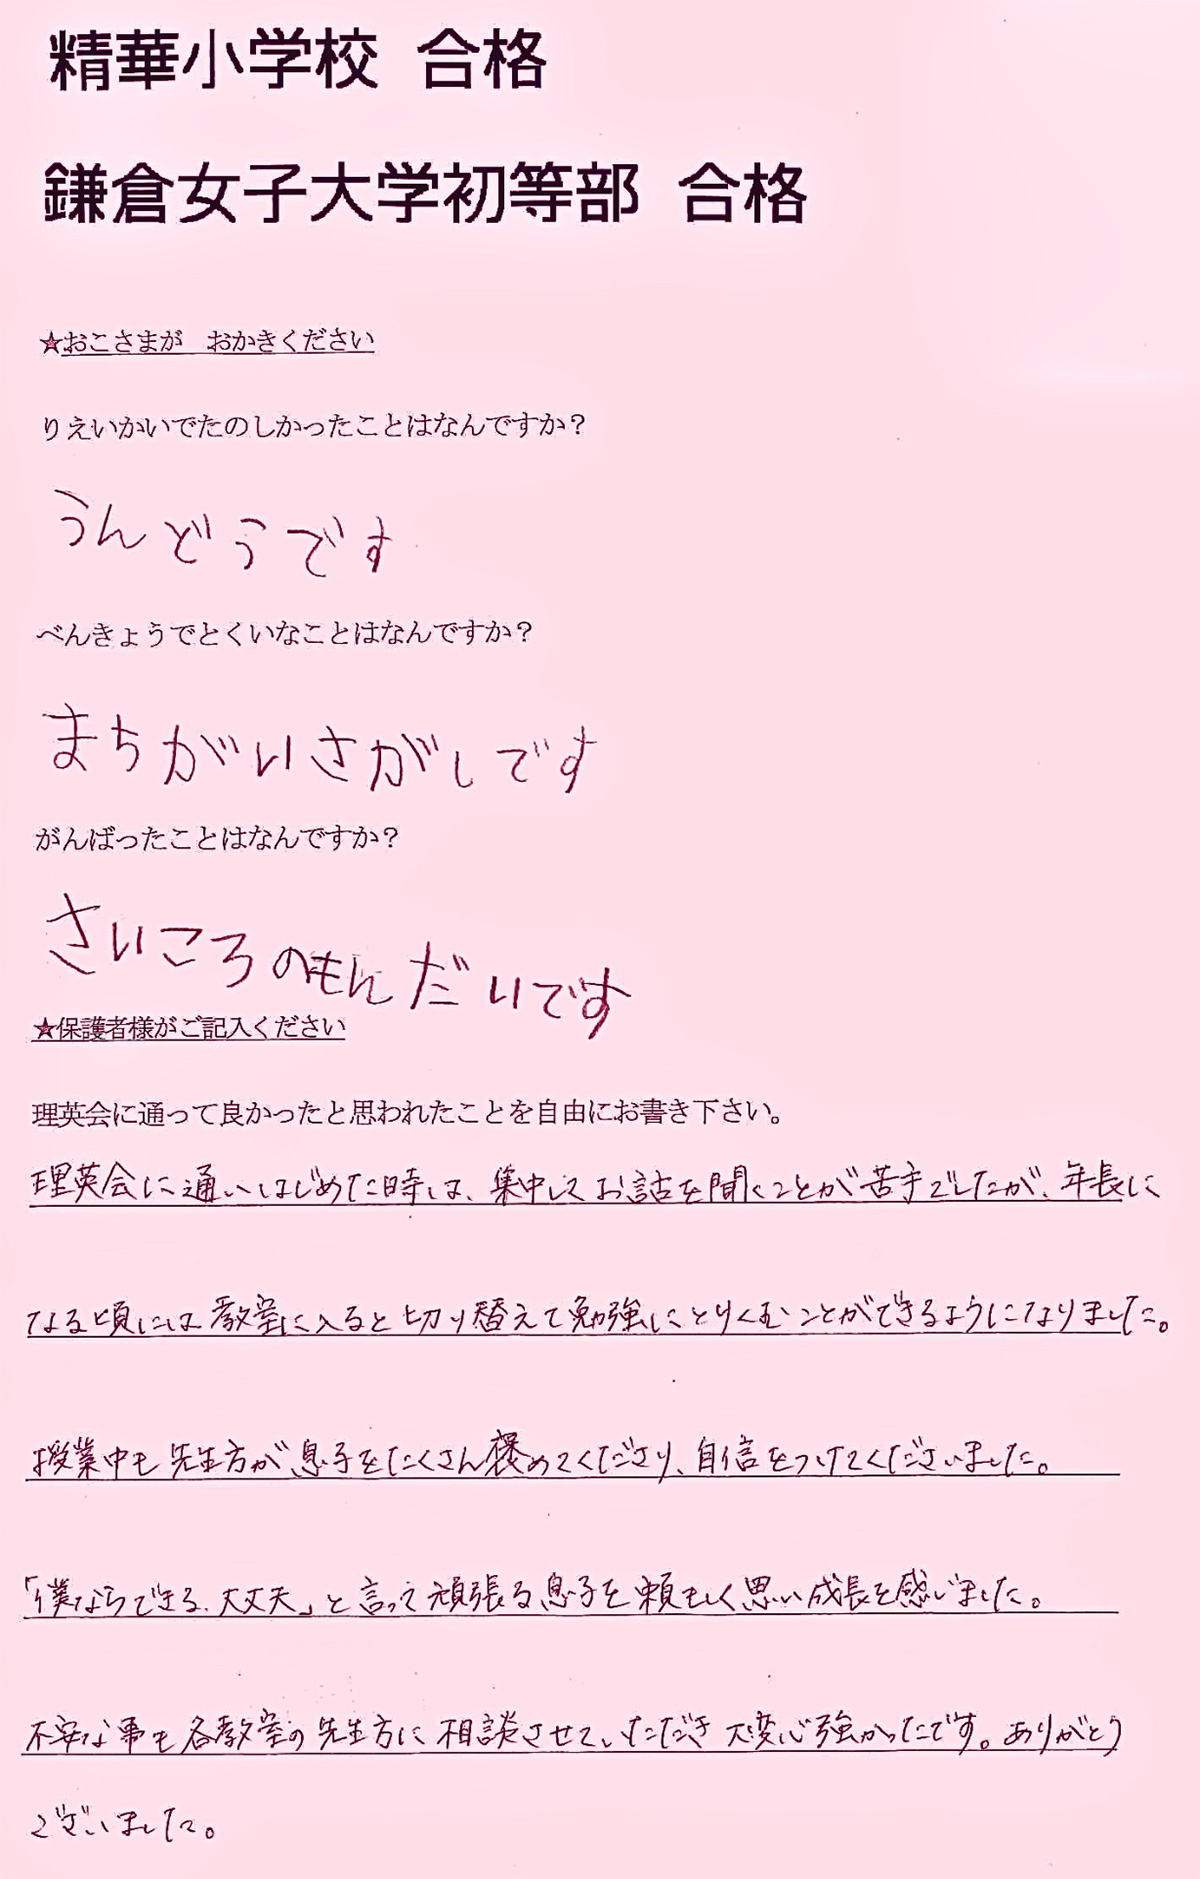 精華小学校 合格
鎌倉女子大学初等部 合格
★おこさまが おかきください
りえいかいでたのしかったことはなんですか？
うんどうです
べんきょうでとくいなことはなんですか？
まちがいさがしです
がんばったことはなんですか？
さいころのもんだいです
★保護者様がご記入ください
理英会に通って良かったと思われたことを自由にお書き下さい。
理英会に通いはじめた時は、集中してお話を聞くことが苦手でしたが、年長に
なる頃には教室に入ると切り替えて勉強にとりくむことができるようになりました。
授業中も先生方が息子をたくさん褒めてくださり、自信をつけてくださいました。
「僕ならできる、大丈夫」と言って頑張る息子を頼もしく思い成長を感じました。
不安な事も各教室の先生方に相談させていただき大変心強かったです。ありがとう
ございました。